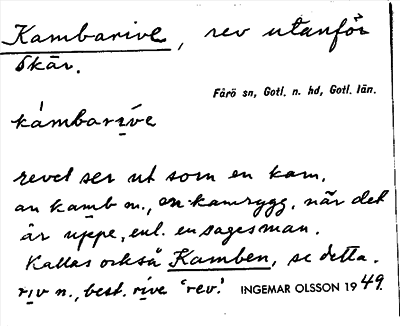 Kambarive, rev utanför
Skär.
Fårö sn, Gotl. n. hd, Gotl. län.
kámbarive
revet ser ut som en kam.
an kamb m., en kamrygg, när det
är uppe, enl. en sagesman.
Kallas också Kamben, se detta.
riv n., best. rive 'rev'.
INGEMAR OLSSON 1949.